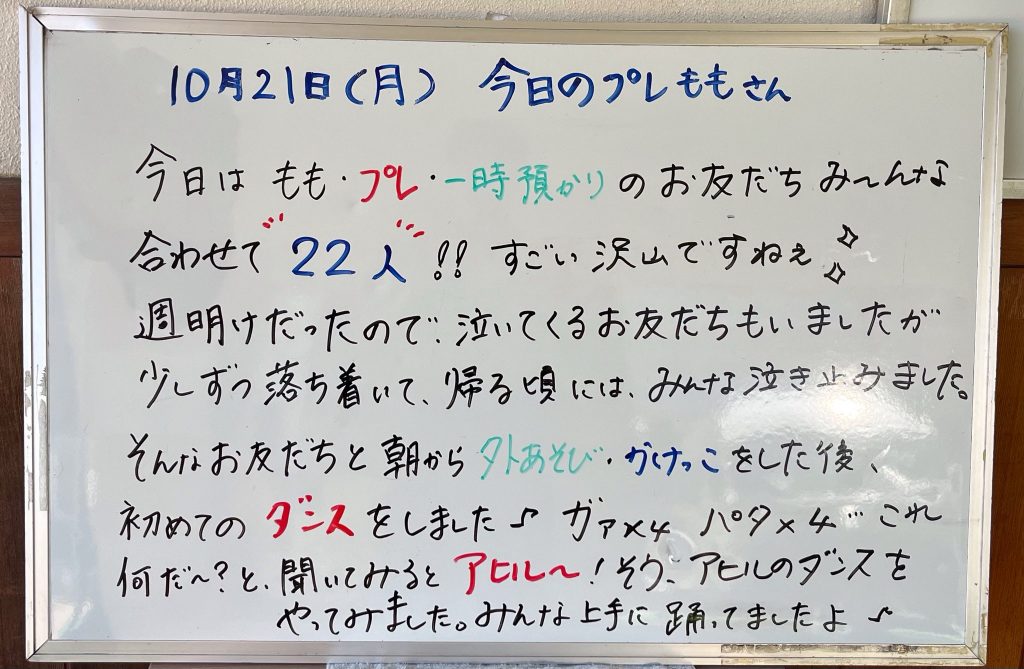 10月21日(月) 今日のプレももさん
今日は もも・プレ・一時預かり の お友だち み〜んな
合わせて "22人" !! すごい 沢山ですねぇ
週明けだったので、泣いてくるお友だちもいましたが
少しずつ落ち着いて、帰る頃には、みんな泣き止みました。
そんなお友だちと 朝から 外あそび・かけっこ をした後、
初めての ダンス をしました♪ ガァ×4 パタ×4… これ
何だ〜?と、聞いてみると アヒル〜! そう、アヒルのダンスを
やってみました。みんな上手に 踊ってましたよ ♪